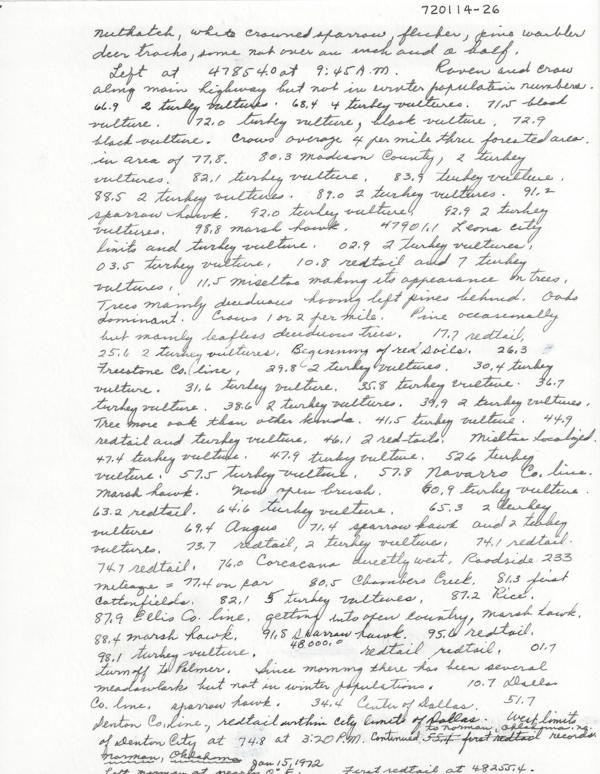 720114-26
nuthatch, white crowned sparrow, flicker, pine warbler
deer tracks, some not over an inch and a half.
Left at 47854.0 at 9:45 A.M. Raven and crow
along main highway but not in winter population numbers.
66.9 2 turkey vultures. 68.4 4 turkey vultures. 71.5 black
vulture. 72.0 turkey vulture, black vulture. 72.9
black vulture. Crows average 4 per mile thru forested area
in area of 77.8. 80.3 Madison County, 2 turkey
vultures. 82.1 turkey vulture. 83.9 turkey vulture.
88.5 2 turkey vultures. 89.0 2 turkey vultures. 91.2
sparrow hawk. 92.0 turkey vulture, 92.9 2 turkey
vultures. 98.8 marsh hawk. 47901.1 Leona city
limits and turkey vulture. 02.9 2 turkey vultures,
03.5 turkey vulture, 10.8 redtail and 7 turkey
vultures, 11.5 miseltoe making its appearance in trees.
Trees mainly deciduous having left pines behind. Oaks
dominant. Crows 1 or 2 per mile. Pine occasionally
but mainly leafless deciduous trees. 17.7 redtail,
25.6 2 turkey vultures. Beginning of red soils. 26.3
Freestone Co. line, 29.8 2 turkey vultures. 30.4 turkey
vulture. 31.6 turkey vulture. 35.8 turkey vulture. 36.7
turkey vulture. 38.6 2 turkey vultures. 39.9 2 turkey vultures.
Tree more oak than other kinds. 41.5 turkey vulture. 44.9
redtail and turkey vulture, 46.1 2 red-tails. Misltoe localized.
47.4 turkey vulture. 47.9 turkey vulture. 52.6 turkey
vulture. 57.5 turkey vulture. 57.8 Navarro Co. line.
Marsh hawk. Now open brush. 60.9 turkey vulture.
63.2 redtail. 64.6 turkey vulture. 65.3 2 turkey
vultures 69.4 Angus 71.4 sparrow hawk and 2 turkey
vultures. 73.7 redtail, 2 turkey vultures, 74.1 redtail.
74.7 redtail, 76.0 Corcacana directly west, Roadside 233
mileage = 77.4 on car 80.5 Chambers Creek, 81.3 first
cottonfields. 82.1 5 turkey vultures, 87.2 Rice.
87.9 Ellis Co. line. getting into open country, marsh hawk.
88.4 marsh hawk. 91.8 sparrow hawk. 95.0 redtail.
98.1 turkey vulture. 48,000.0 redtail redtail. 01.7
turnoff to Palmer. Since morning there has been several
meadowlark but not in winter populations. 10.7 Dallas
Co. line. sparrow hawk. 34.4 Center of Dallas. 51.7
Denton Co. line, redtail within City limits of Dallas. West limits
of Denton City at 74.8 at 3:20 P.M. Continued to Norman, Oklahoma
first redtail records
Norman, Oklahoma Jan 15, 1972
Left Norman at First redtail at 48255.4.